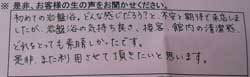 ※是非、お客様の生の声をお聞かせください。
初めての岩盤浴。どんな感じだろう?と、不安と期待で来店しま
したが、岩盤浴の気持ち良さ、接客、館内の清潔感
どれをとっても素晴しかったです。
是非、また利用させて頂きたいと思います。